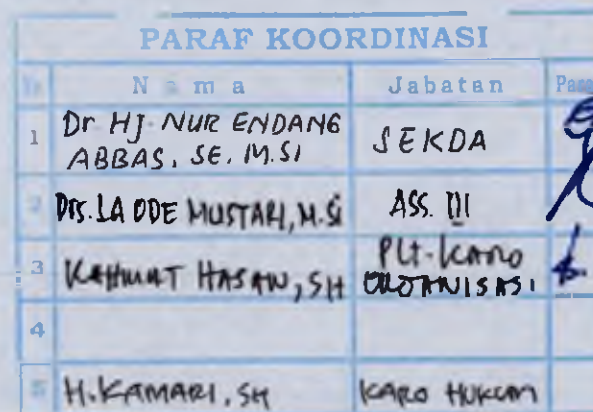 PARAF KOORDINASI
N a m a Jabatan
1 Dr Hj. NUR ENDANG SEKDA
ABBAS, SE, M.SI
2 DRS. LA ODE MUSTARI, M.Si ASS. III
3 RAHMAT HASAN, SH Plt. KARO
ORGANISASI
4
5 H. KAMARI, SH KARO HUKUM